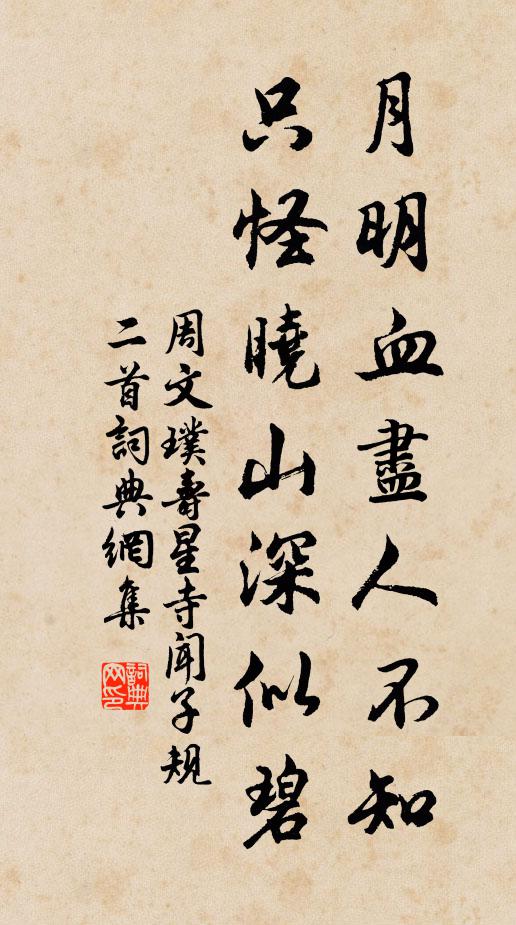 月明血盡人不知
只怪曉山深似碧
周文璞壽星寺聞子規
二首詞典網集
詞典
网印